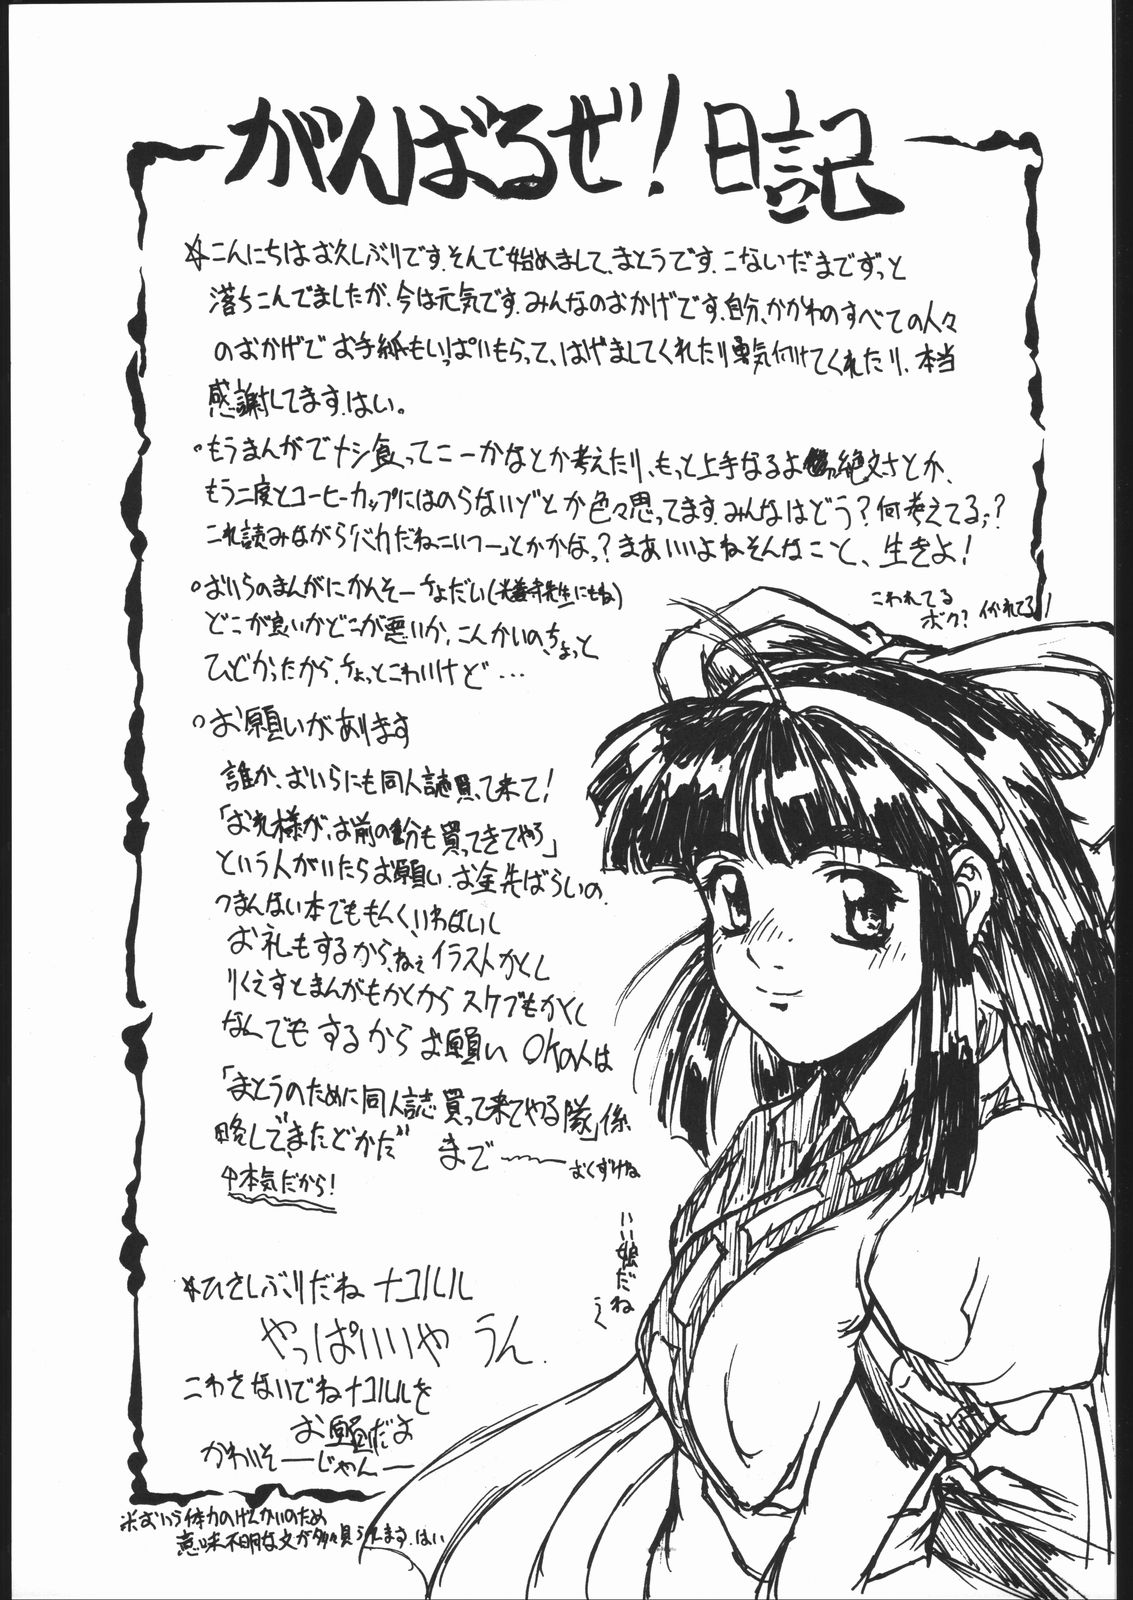 がんばるぜ!日記
☆こんにちはお久しぶりです.そんで始めまして、まとうです.こないだまでずっと
落ちこんでましたが、今は元気です.みんなのおかげです.自分、かかわのすべての人々
のおかげで お手紙もいっぱいもらって、はげましてくれたり勇気付けてくれたり、本当
感謝してます.はい。
○もうまんがでメシ食ってこーかなとか考えたり、もっと上手なるよ 絶対さとか、
もう二度とコーヒーカップにはのらないゾとか色々思ってます.みんなはどう?何考えてる;?
これ読みながら「バカだねこいつー」とかかなっ?まあいいよねそんなこと、生きよ!
○おいらのまんがにかんそーちょだい(光善寺先生にもね)
どこが良いかどこが悪いか、こんかいの、ちょっと
ひどかったから、ちょっとこわいけど…
こわれてる
ボク?イかれてる!
○お願いがあります
誰か、おいらにも同人誌買って来て!
「おれ様が、お前の分も買ってきてやろ」
という人がいたらお願い.お金先ばらいの.
つまんない本でももんくいわないし
お礼もするから、ねぇイラストかくし
りくえすとまんがもかくから スケブもかくし
なんでもするからお願い OKの人は
「まとうのために同人誌買って来てやる隊」係
略して、またどかだ" まで〜 おくずけね
↑本気だから!
いい娘だね
う〜
☆ひさしぶりだね ナコルル
やっぱいいや うん.
こわさないでねナコルルを
お願いだよ
かわいそーじゃんー
※おいら体力のげんかいのため
意味不明な文が多々見られます.はい